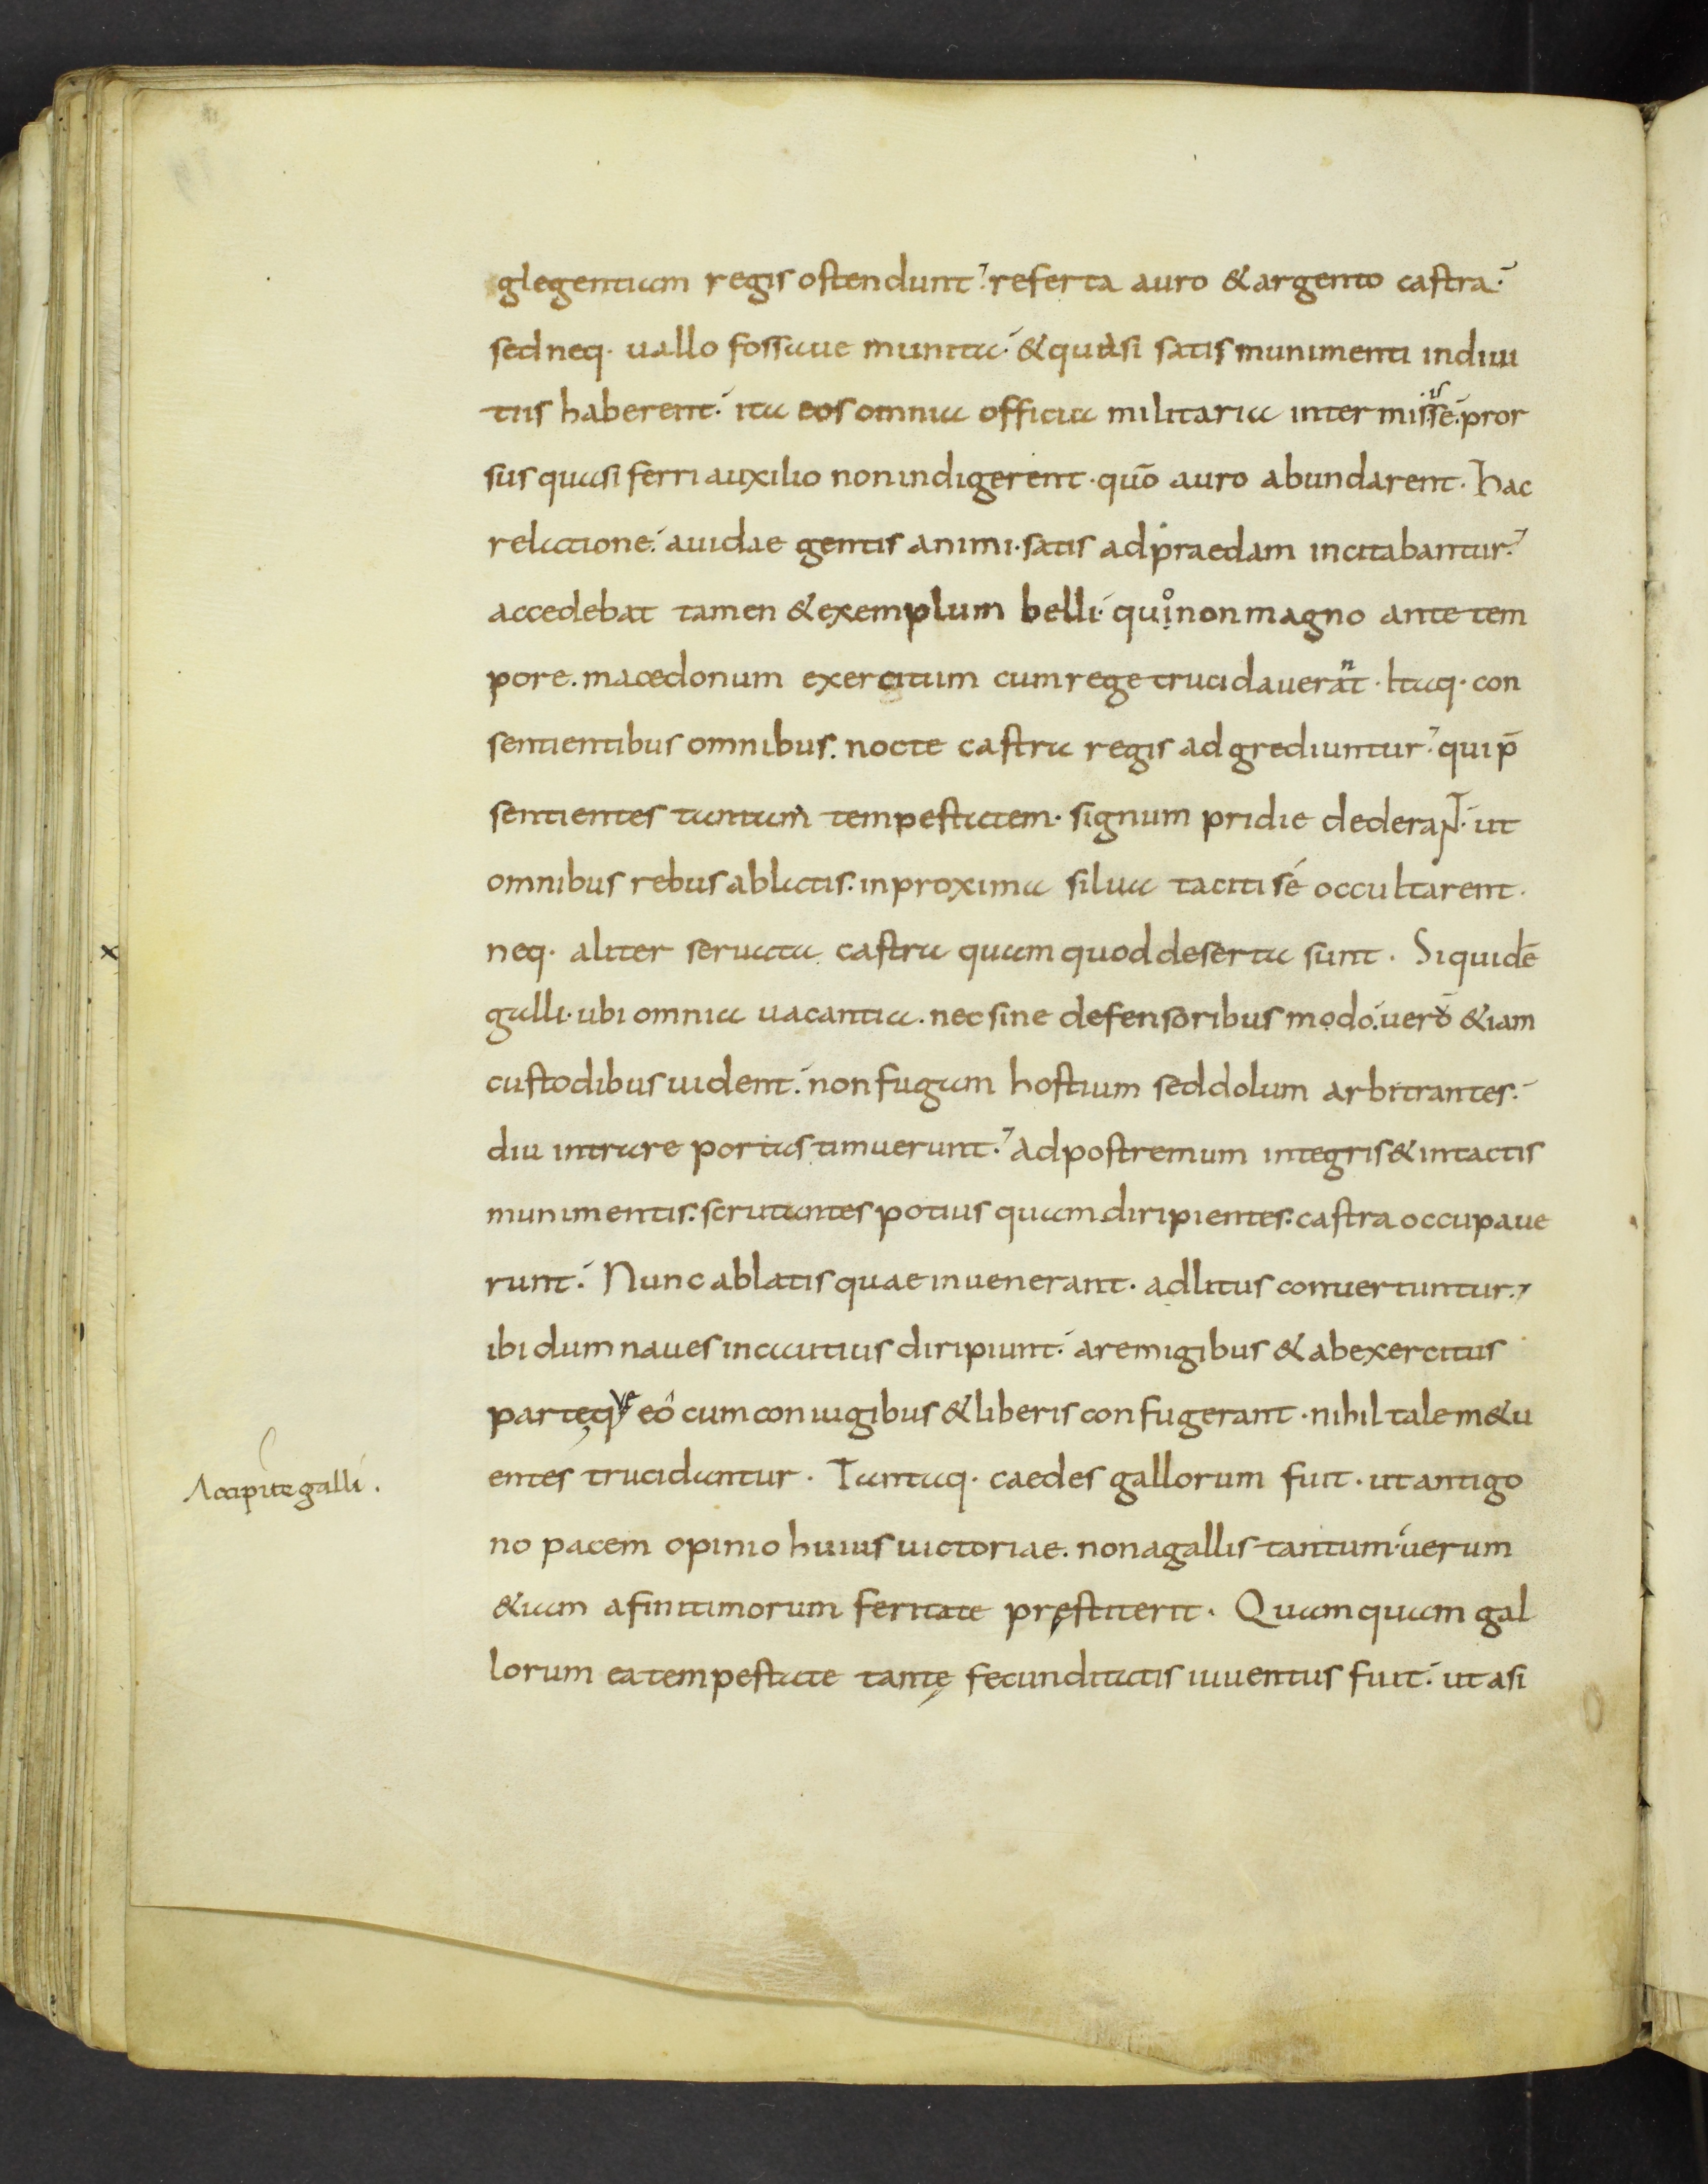 glegentiam regis ostendunt. referta auro & argento castra.
sed neq. uallo fossaue munita. & quasi satis munimenti indiui
tiis haberent. ita eos omnia officia militaria intermisisse. pror
sus quasi ferri auxilio non indigerent. quō auro abundarent. Hac
relatione. auidae gentis animi. satis ad praedam incitabantur.
accedebat tamen & exemplum belli. quio non magno ante tem
pore. macedonum exercitum cum rege trucidauerant. Itaq. con
sentientibus omnibus. nocte castra regis adgrediuntur. qui p̄
sentientes tantam tempestatem. signum pridie dederaNT. ut
omnibus rebus ablatis. in proxima silua taciti sé occultarent.
neq. aliter seruata castra quam quod deserta sunt. Siquidē
galli. ubi omnia uacantia. nec sine defensoribus modo. uerō &iam
custodibus uident. non fugam hostium sed dolum arbitrantes.
diu intrare portas timuerunt. Ad postremum integris & intactis
munimentis. scrutantes potius quam diripientes. castra occupaue
runt. Nunc ablatis quae inuenerant. ad litus conuertuntur.
ibi dum naues incautius diripiunt. a remigibus & ab exercitus
parte q ve eô cum coniugibus & liberis confugerant. nihil tale m&u
entes trucidantur. Tantaq. caedes gallorum fuit. ut antigo
Accipite galli.
no pacem opinio huius uictoriae. non a gallis tantum. uerum
&iam a finitimorum feritate pręstiterit. Quamquam gal
lorum ea tempestate tantę fecunditatis iuuentus fuit. ut asi